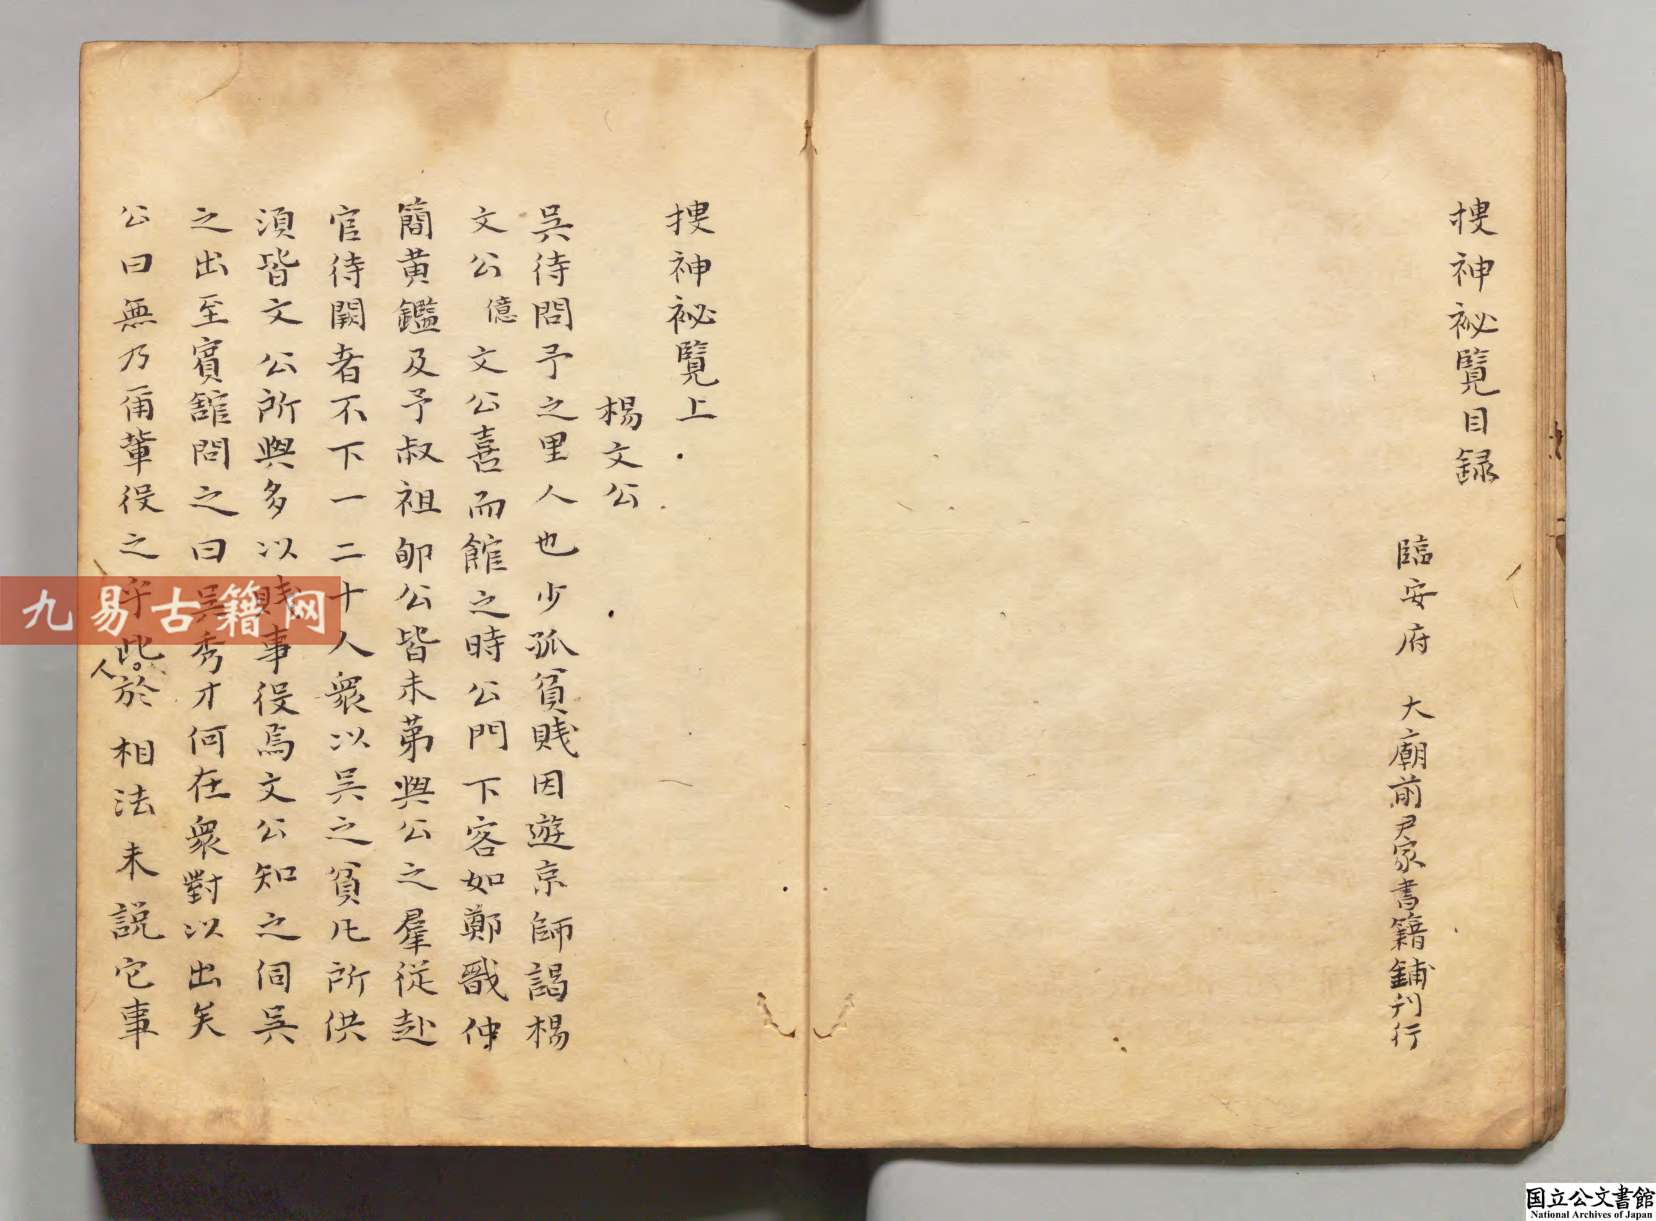 搜神祕覽目録
臨安府 大廟前尹家書籍鋪刋行
搜神祕覽上
楊文公
呉待問予之里人也少孤貧賤因遊京師謁楊
文公億文公喜而館之時公門下客如鄭戩仲
簡黄鑑及予叔祖郇公皆未第與公之羣従赴
官待闕者不下一二十人衆以呉之貧凡所供
湏皆文公所與多以賤事役焉文公知之伺呉
之出至賔舘問之曰呉秀才何在衆對以出矣
公曰無乃爾輩役之乎此人於相法未説它事
九易古籍网
国立公文書館
National Archives of Japan